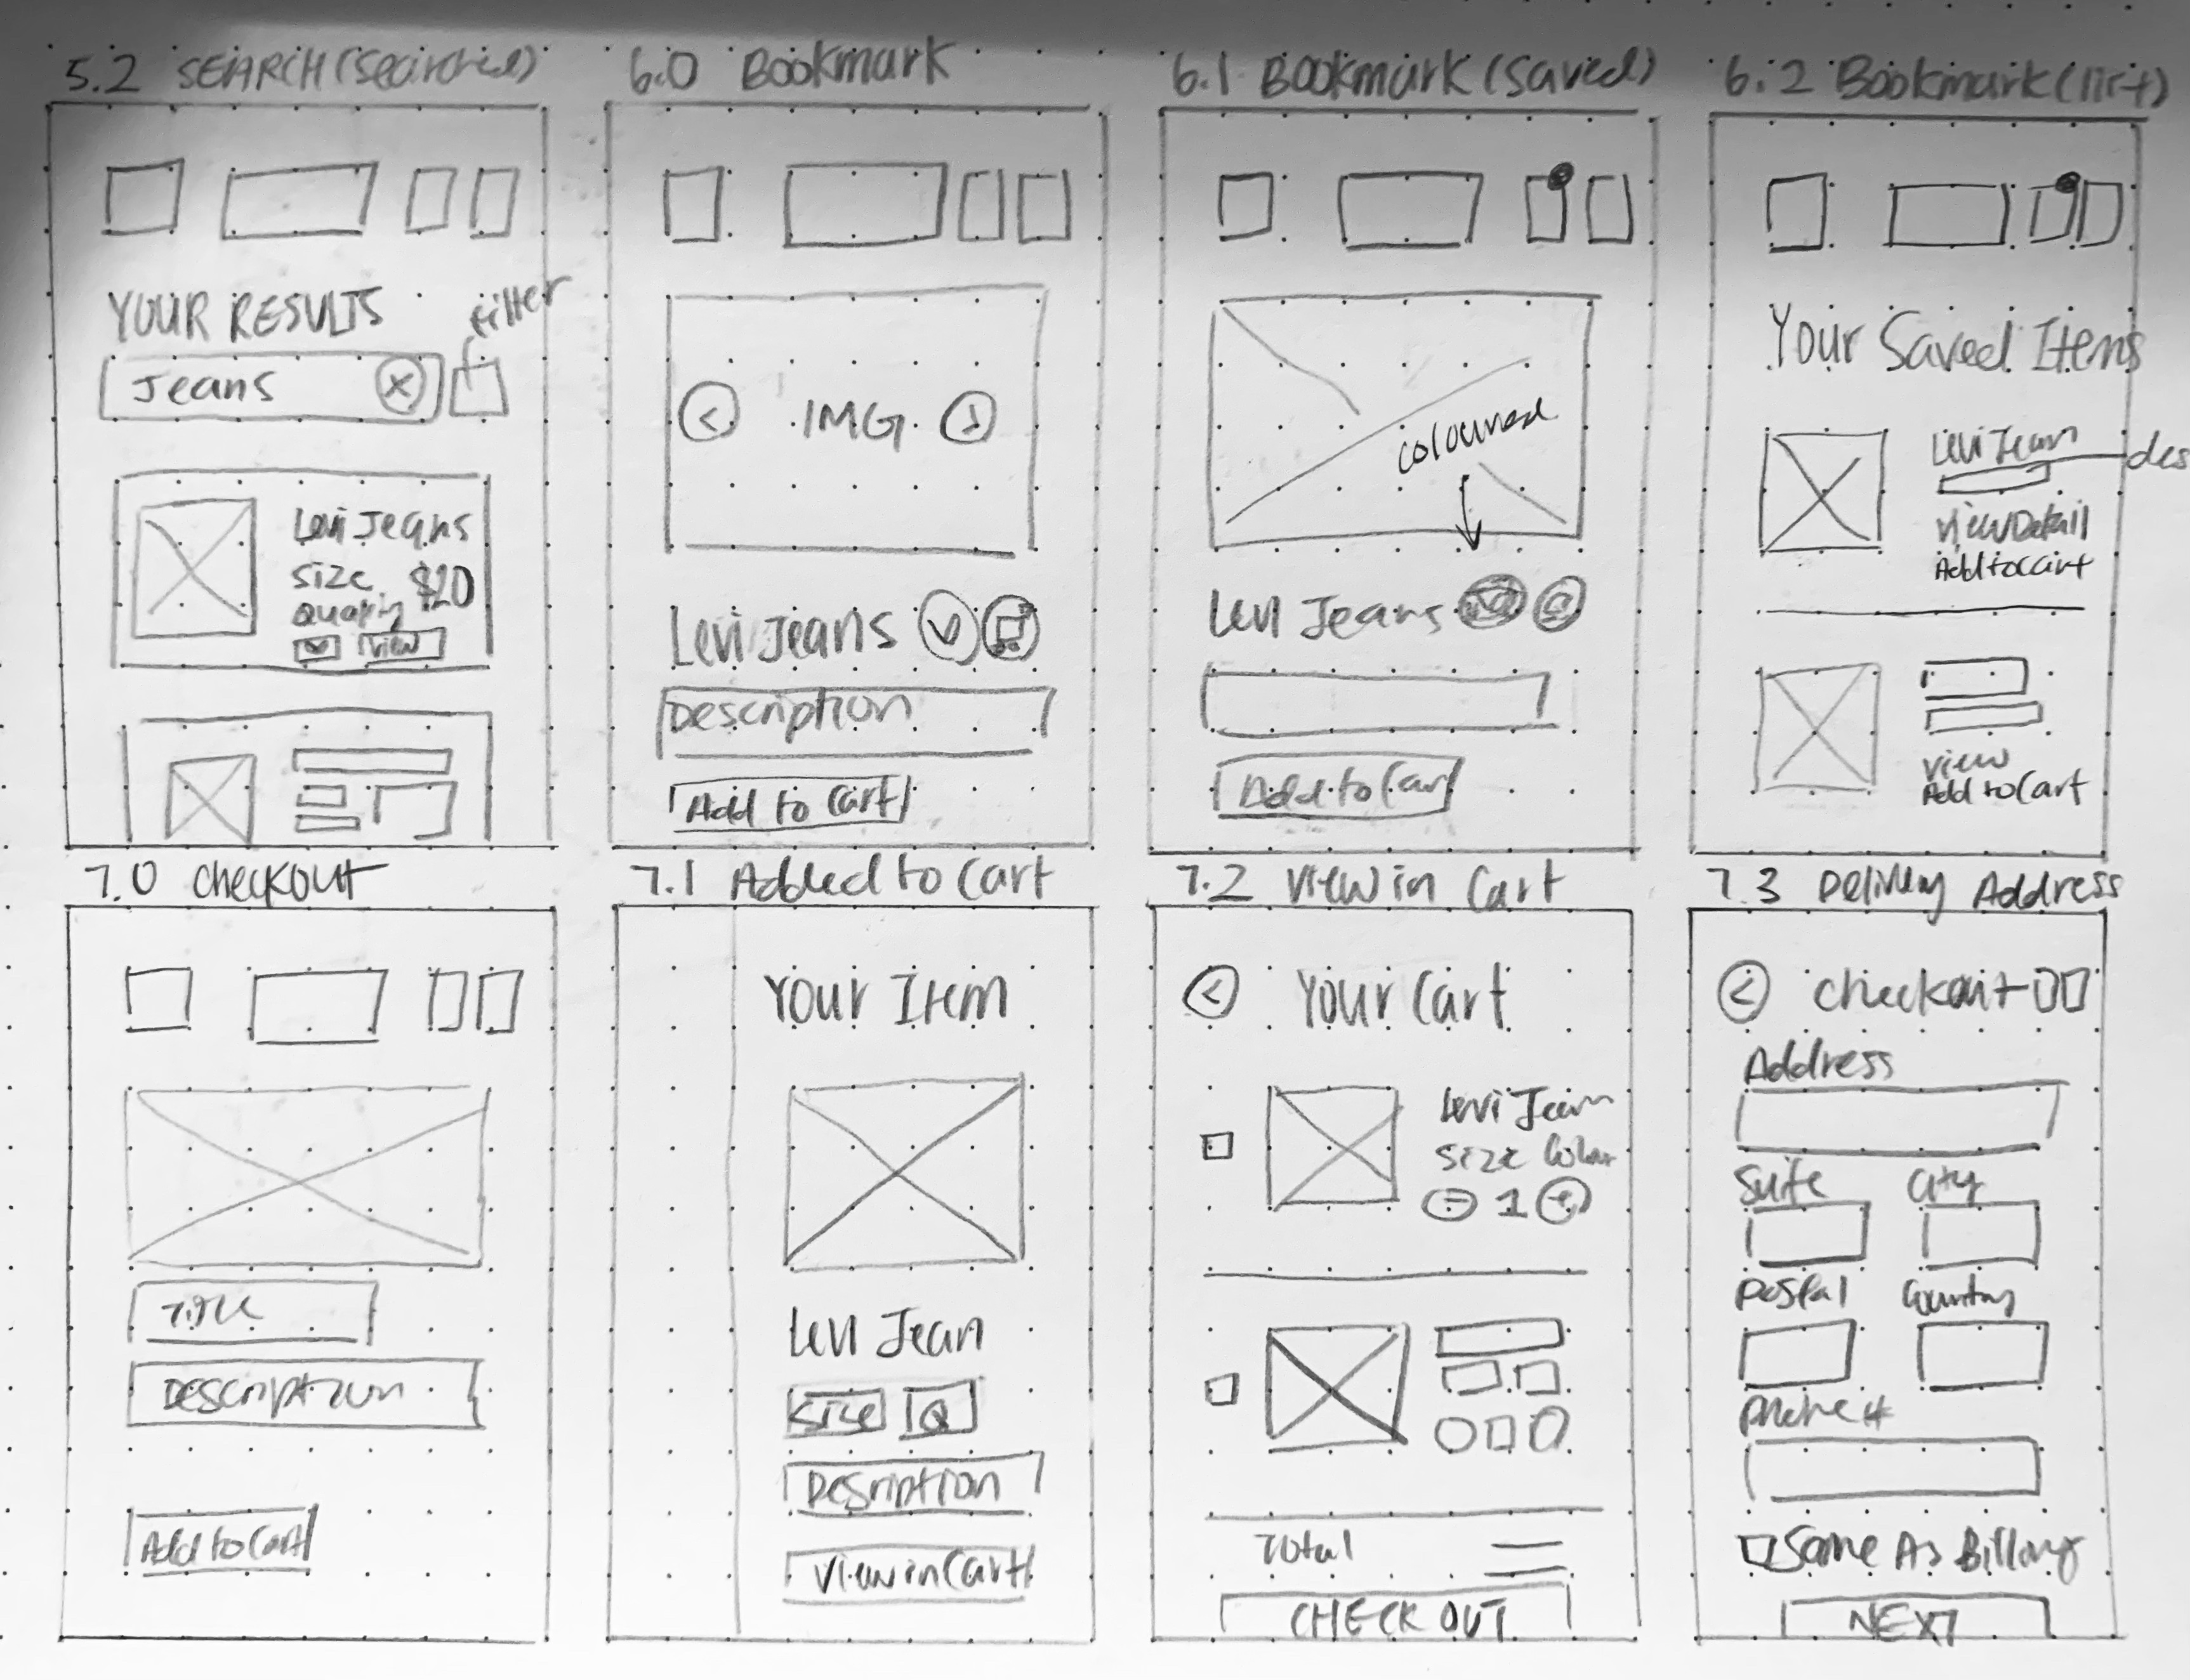 5.2 SEARCH (searched)
YOUR RESULTS
filter
Jeans X
Levi Jeans
size $20
Quality
view
6.0 Bookmark
< IMG >
Levi Jeans
Description
Add to Cart
6.1 Bookmark (saved)
coloured
Levi Jeans
Add to Cart
6.2 Bookmark (list)
Your Saved Items
Levi Jean
des
view Detail
Add to cart
view
Add to Cart
7.0 checkout
Title
Description
Add to Cart
7.1 Added to Cart
Your Item
Levi Jean
Size Q
Description
View in Cart
7.2 View in Cart
< Your Cart
Levi Jean
Size Color
- 1 +
Total
CHECK OUT
7.3 Delivery Address
< checkout
Address
Suite City
Postal Country
Phone #
Same As Billing
NEXT